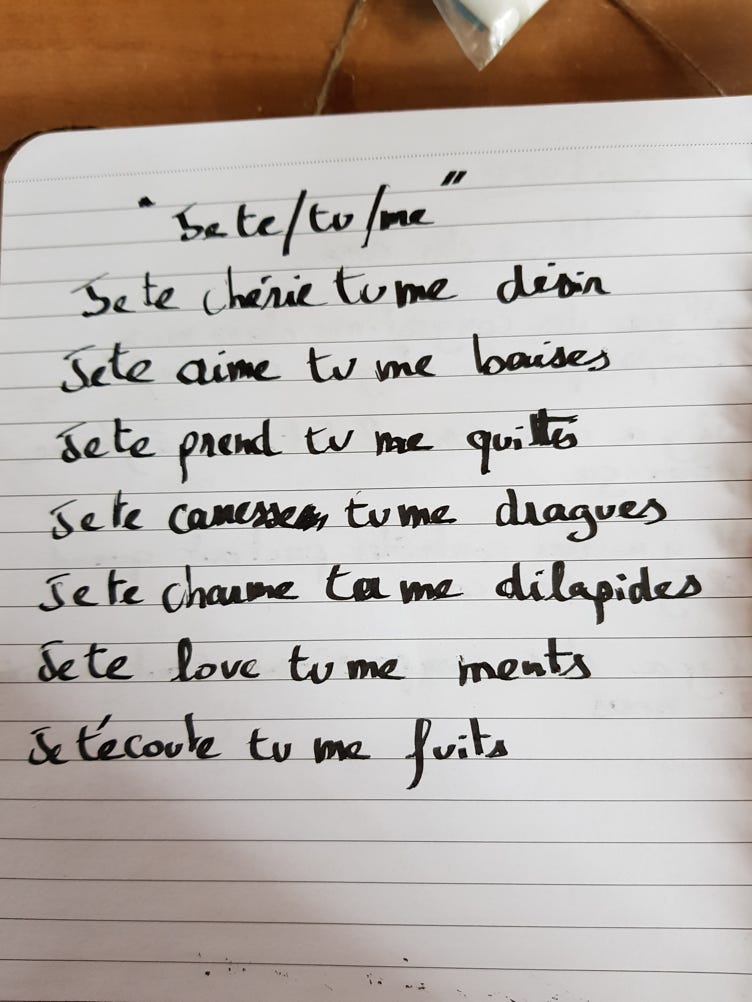 "Je te/tu/me"
Je te chérie tu me désir
Je te aime tu me baises
Je te prend tu me quittes
Je te caresses, tu me dragues
Je te charme tu me dilapides
Je te love tu me ments
Je t'écoute tu me fuits